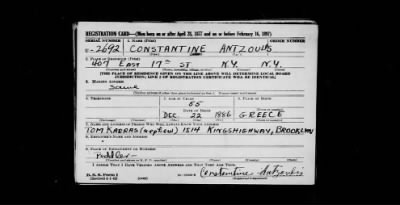 REGISTRATION CARD—(Men born on or after April 28, 1877 and on or before February 16, 1897)
SERIAL NUMBER 1. NAME (Print)
U-2692 CONSTANTINE ANTZOULIS
(First) (Middle) (Last)
2. PLACE OF RESIDENCE (Print)
407 EAST 17th ST N.Y. N.Y.
[THE PLACE OF RESIDENCE GIVEN ON THE LINE ABOVE WILL DETERMINE LOCAL BOARD
JURISDICTION; LINE 2 OF REGISTRATION CERTIFICATE WILL BE IDENTICAL]
3. MAILING ADDRESS
Same
4. TELEPHONE 5. AGE IN YEARS 6. PLACE OF BIRTH
55
DATE OF BIRTH
DEC. 22 1886 GREECE
7. NAME AND ADDRESS OF PERSON WHO WILL ALWAYS KNOW YOUR ADDRESS
TOM KADRAS (nephew) 1514 KINGSHIGHWAY, BROOKLYN
8. EMPLOYER'S NAME AND ADDRESS
Peddler
9. PLACE OF EMPLOYMENT OR BUSINESS
I AFFIRM THAT I HAVE VERIFIED ABOVE ANSWERS AND THAT THEY ARE TRUE.
D. S. S. Form 1
Constantine Antzoulis